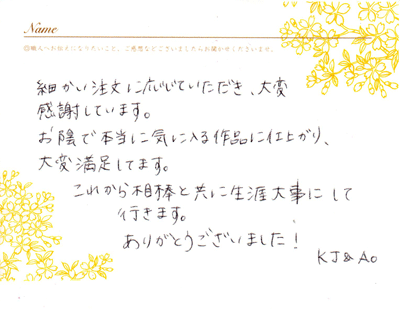 Name
職人へお伝えになりたいこと、ご感想などございましたらお聞かせくださいませ。
細かい注文に応じていただき、大変
感謝しています。
お陰で本当に気に入る作品に仕上がり、
大変満足してます。
これから相棒と共に生涯大事にして
行きます。
ありがとうございました!
KJ & Ao